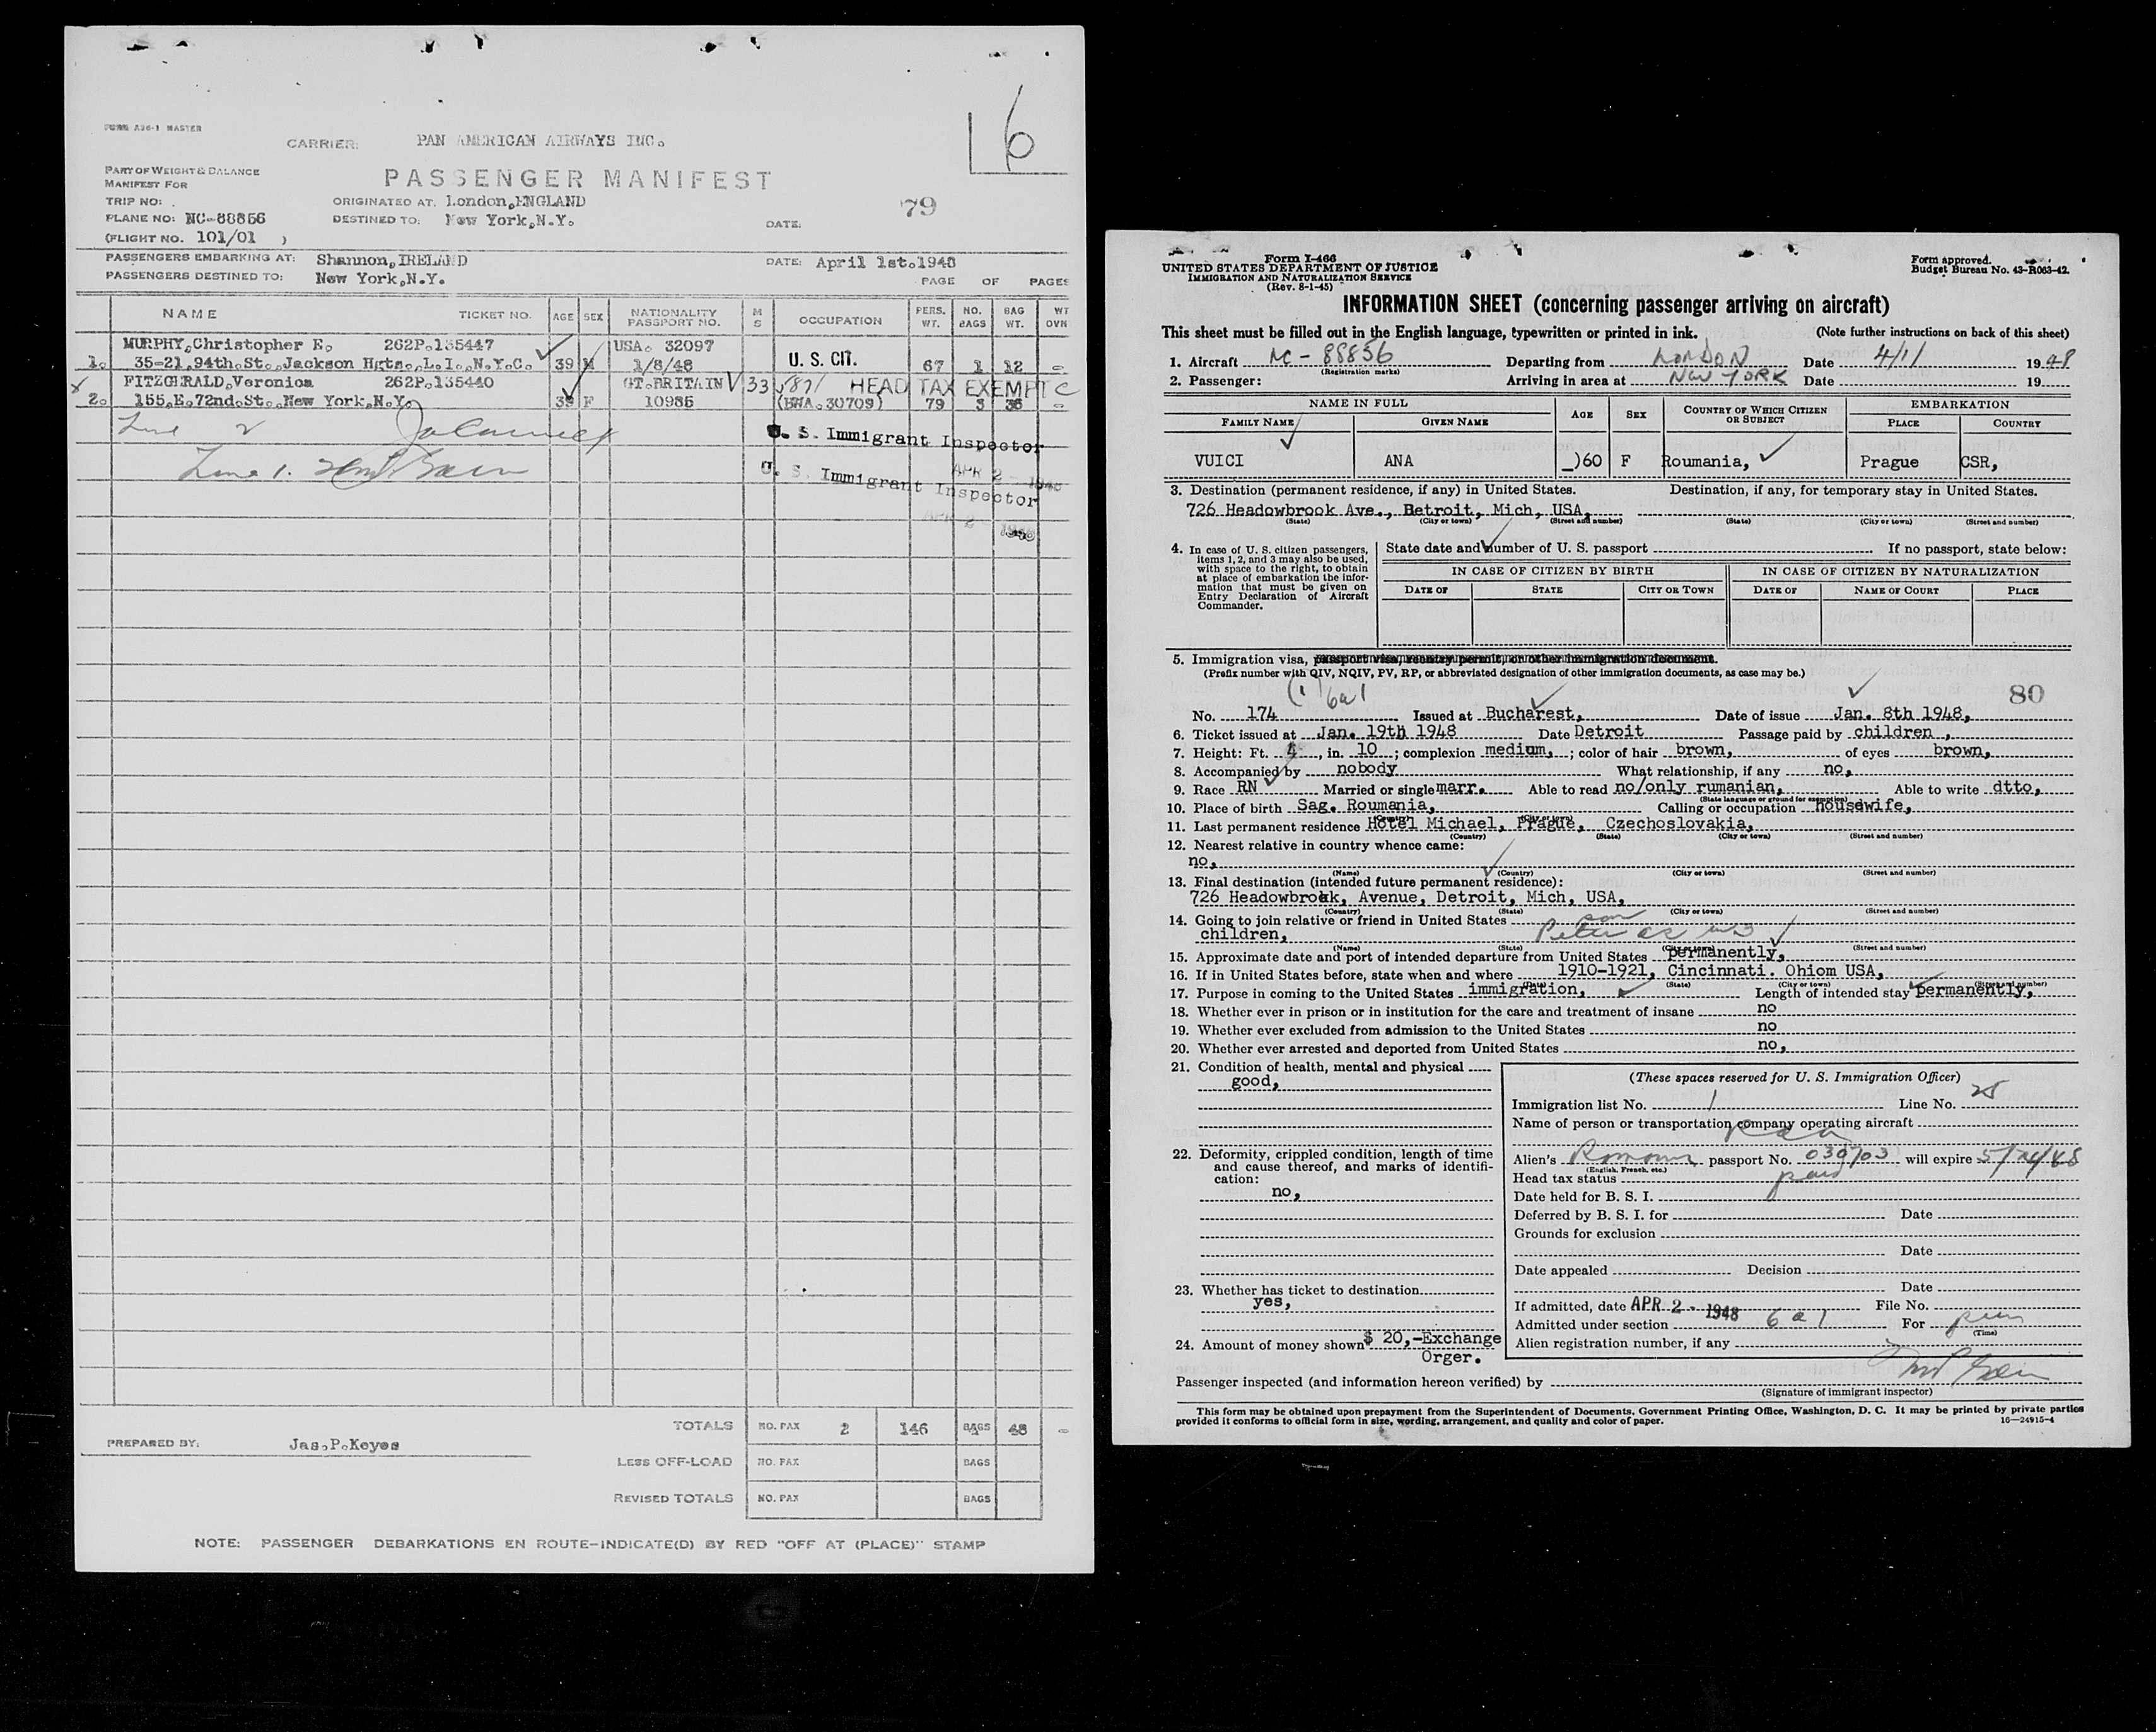 6
FORM A36-1 MASTER
CARRIER: PAN AMERICAN AIRWAYS INC.
PART OF WEIGHT & BALANCE
MANIFEST FOR
PASSENGER MANIFEST
TRIP NO: .
ORIGINATED AT. London,ENGLAND
79
PLANE NO: NC-88856
DESTINED TO: New York,N.Y.
DATE:
(FLIGHT NO. 101/01 )
PASSENGERS EMBARKING AT: Shannon,IRELAND
DATE: April 1st.1948
PASSENGERS DESTINED TO: New York,N.Y.
PAGE OF PAGES
NAME TICKET NO. AGE SEX NATIONALITY PASSPORT NO. M S OCCUPATION PERS. WT. NO. BAGS BAG WT. WT OVN
MURPHY,Christopher E. 262P.135447 USA. 32097
1. 35-21,94th.St.,Jackson Hgts.,L.I.,N.Y.C. 39 M 1/8/48 U. S. CIT. 67 1 12
FITZGERALD,Veronica 262P.135440 GT.BRITAIN 33 HEAD TAX EXEMPT C
2. 155,E.72nd.St.,New York,N.Y. 39 F 10985 (BWA.30709) 79 3 36
Line 2
U. S. Immigrant Inspector
Line 1.
APR 2 - 1948
U. S. Immigrant Inspector
APR 2 - 1948
TOTALS NO. PAX 2 146 BAGS 48
PREPARED BY: Jas.P.Keyes
LESS OFF-LOAD NO. PAX BAGS
REVISED TOTALS NO. PAX BAGS
NOTE: PASSENGER DEBARKATIONS EN ROUTE-INDICATE(D) BY RED "OFF AT (PLACE)" STAMP
Form I-466
UNITED STATES DEPARTMENT OF JUSTICE
IMMIGRATION AND NATURALIZATION SERVICE
(Rev. 8-1-45)
Form approved.
Budget Bureau No. 43-R063-42.
INFORMATION SHEET (concerning passenger arriving on aircraft)
This sheet must be filled out in the English language, typewritten or printed in ink. (Note further instructions on back of this sheet)
1. Aircraft NC-88856 Departing from LONDON Date 4/1 1948
(Registration marks)
2. Passenger: Arriving in area at NEW YORK Date 19
NAME IN FULL AGE SEX COUNTRY OF WHICH CITIZEN OR SUBJECT EMBARKATION
FAMILY NAME GIVEN NAME PLACE COUNTRY
VUICI ANA _)60 F Roumania, Prague CSR,
3. Destination (permanent residence, if any) in United States. Destination, if any, for temporary stay in United States.
726 Headowbrook Ave., Detroit, Mich, USA,
(State) (City or town) (Street and number) (State) (City or town) (Street and number)
4. In case of U. S. citizen passengers, items 1, 2, and 3 may also be used, with space to the right, to obtain at place of embarkation the information that must be given on Entry Declaration of Aircraft Commander.
State date and number of U. S. passport If no passport, state below:
IN CASE OF CITIZEN BY BIRTH IN CASE OF CITIZEN BY NATURALIZATION
DATE OF STATE CITY OR TOWN DATE OF NAME OF COURT PLACE
5. Immigration visa, passport visa, reentry permit, or other immigration document.
(Prefix number with QIV, NQIV, PV, RP, or abbreviated designation of other immigration documents, as case may be.)
6a1
80
No. 174 Issued at Bucharest, Date of issue Jan. 8th 1948,
6. Ticket issued at Jan. 19th 1948 Date Detroit Passage paid by children ,
7. Height: Ft. 4, in. 10; complexion medium, ; color of hair brown, of eyes brown,
8. Accompanied by nobody What relationship, if any no,
9. Race RN Married or single marr. Able to read no/only rumanian, Able to write dtto,
(State language or ground for exemption)
10. Place of birth Sag. Roumania, Calling or occupation housewife,
(Country) (City or town)
11. Last permanent residence Hotel Michael, Prague, Czechoslovakia,
(Country) (State) (City or town) (Street and number)
12. Nearest relative in country whence came:
no,
(Name) (Country) (City or town) (Street and number)
13. Final destination (intended future permanent residence):
726 Headowbrook, Avenue, Detroit, Mich, USA,
(Country) (State) (City or town) (Street and number)
14. Going to join relative or friend in United States son
children, Peter
(Name) (State) (City or town) (Street and number)
15. Approximate date and port of intended departure from United States permanently,
16. If in United States before, state when and where 1910-1921, Cincinnati. Ohiom USA,
(State) (City or town) (Street and number)
17. Purpose in coming to the United States immigration, Length of intended stay permanently,
18. Whether ever in prison or in institution for the care and treatment of insane no
19. Whether ever excluded from admission to the United States no
20. Whether ever arrested and deported from United States no,
21. Condition of health, mental and physical
good,
22. Deformity, crippled condition, length of time and cause thereof, and marks of identification:
no,
23. Whether has ticket to destination
yes,
24. Amount of money shown $ 20,-Exchange
Orger.
(These spaces reserved for U. S. Immigration Officer)
Immigration list No. 1 Line No. 25
Name of person or transportation company operating aircraft
Alien's passport No. 030703 will expire
(English, French, etc.)
Head tax status paid
Date held for B. S. I.
Deferred by B. S. I. for Date
Grounds for exclusion
Date
Date appealed Decision
Date
If admitted, date APR 2 - 1948 File No.
Admitted under section 6a1 For perm
(Time)
Alien registration number, if any
Passenger inspected (and information hereon verified) by
(Signature of immigrant inspector)
This form may be obtained upon prepayment from the Superintendent of Documents, Government Printing Office, Washington, D. C. It may be printed by private parties
provided it conforms to official form in size, wording, arrangement, and quality and color of paper. 16—24915-4